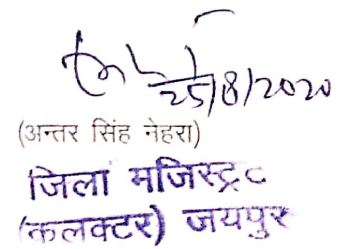 25/8/2020
(अन्तर सिंह नेहरा)
जिला मजिस्ट्रट
(कलक्टर) जयपुर